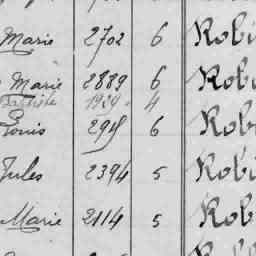 Marie 2702 6 Robi
Marie 2889 6 Robi
Baptiste 1924 4
Louis 2918 6 Rob
Jules 2394 5 Robi
Marie 2114 5 Rob